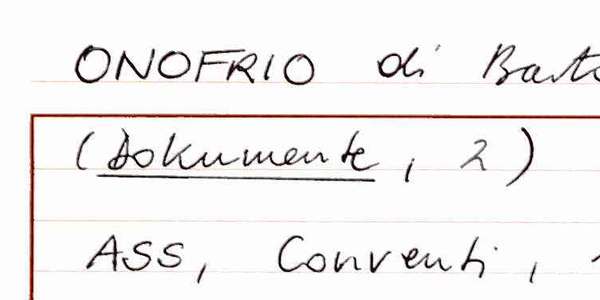 ONOFRIO di
(Dokumente, 2)
ASS, Conventi,